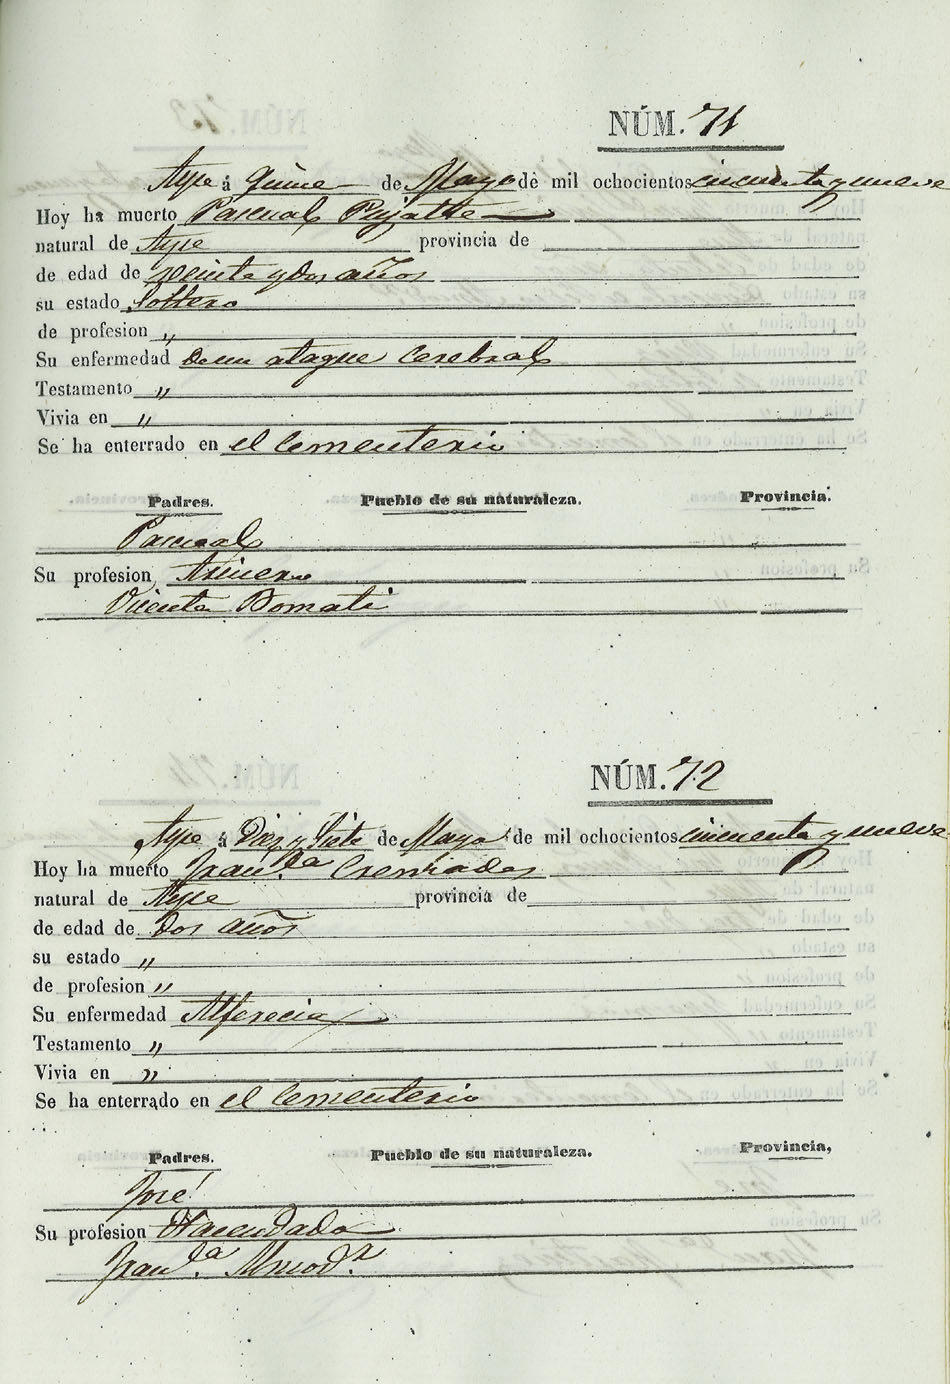 NÚM. 71
Aspe á quince de Mayo de mil ochocientos cincuenta y nueve
Hoy ha muerto Pascual Pujalte
natural de Aspe provincia de
de edad de veinte y dos años
su estado Soltero
de profesion "
Su enfermedad De un ataque Cerebral
Testamento "
Vivia en "
Se ha enterrado en el Cementerio
Padres. Pueblo de su naturaleza. Provincia.
Pascual
Su profesion Arriero
Vicenta Bomati
NÚM. 72
Aspe á Diez y Siete de Mayo de mil ochocientos cincuenta y nueve
Hoy ha muerto Fran.ca Cremades
natural de Aspe provincia de
de edad de Dos años
su estado "
de profesion "
Su enfermedad Alferecia
Testamento "
Vivia en "
Se ha enterrado en el Cementerio
Padres. Pueblo de su naturaleza. Provincia,
José
Su profesion Hacendado
Fran.ca